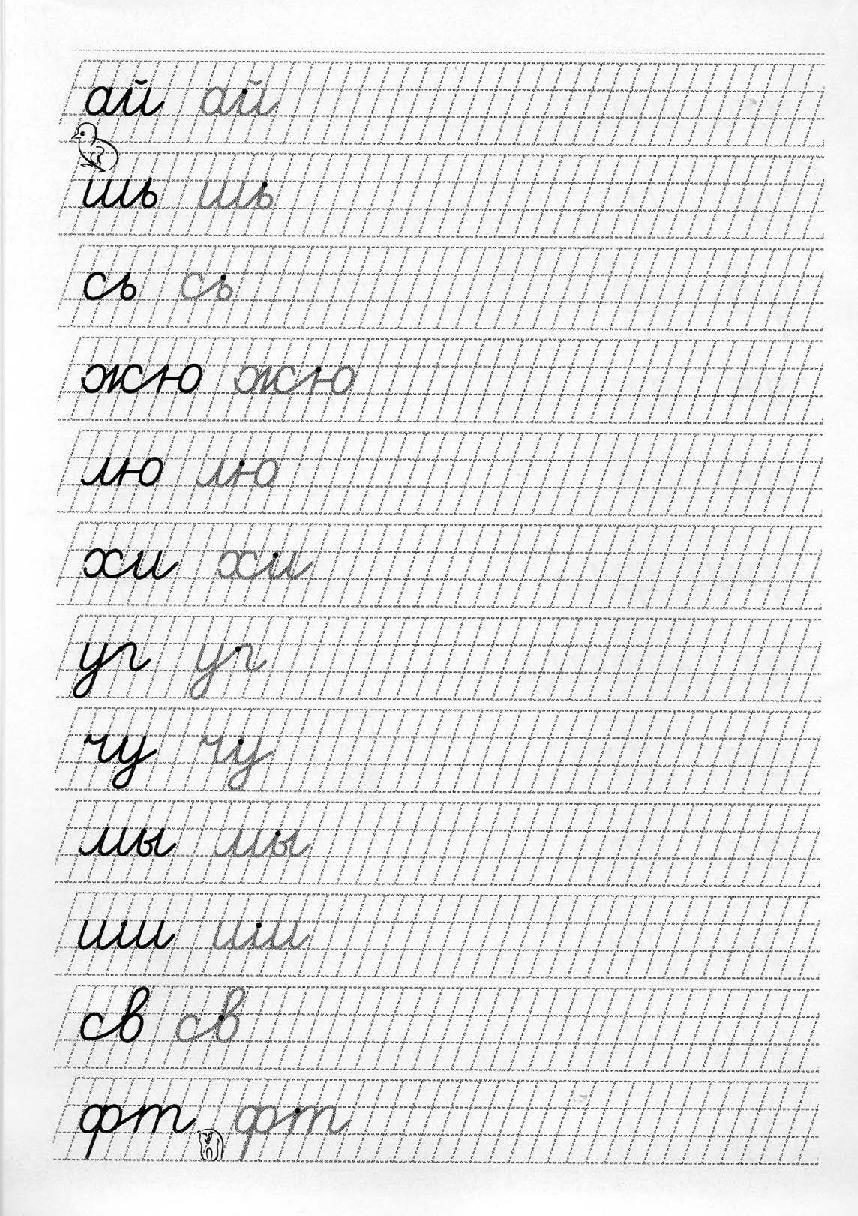 ай ай
шь шь
сь сь
жю жю
лю лю
хи хи
уг уг
чу чу
мы мы
ши ши
св св
фт фт